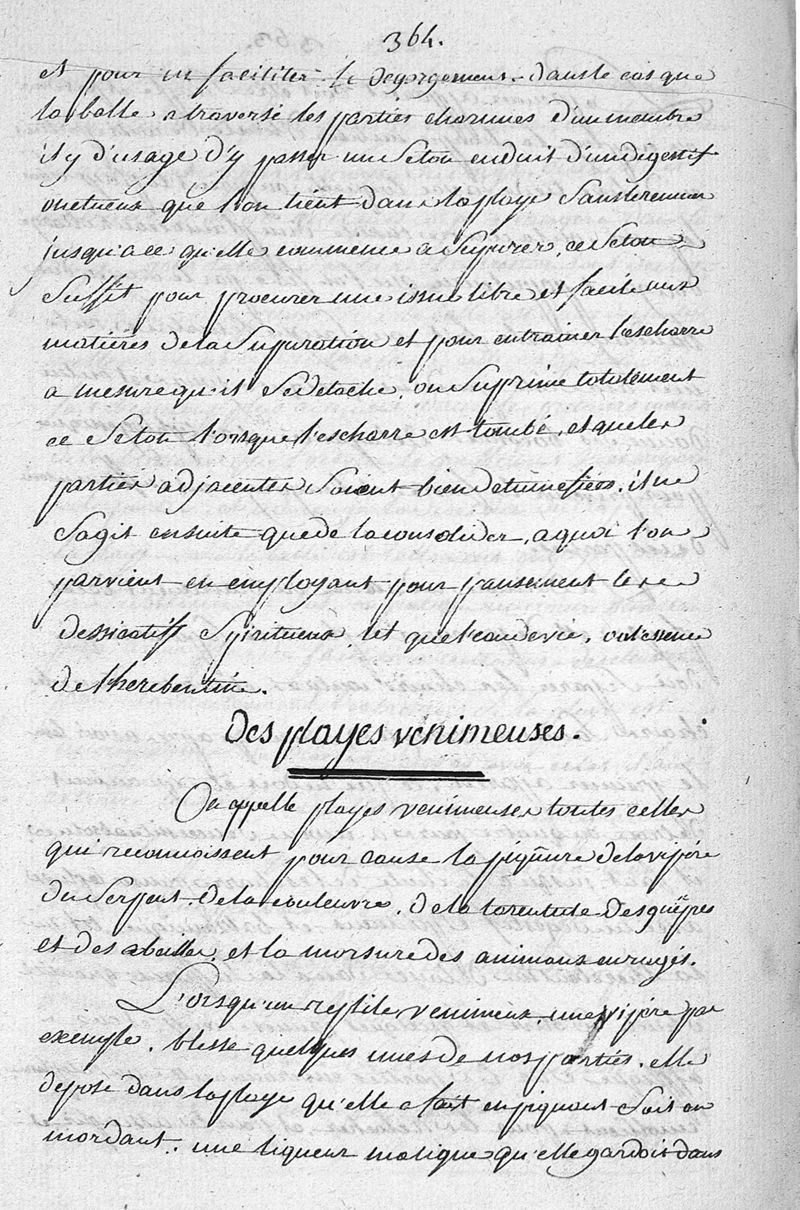 364.
et pour en faciliter le degorgement. dans le cas que
la balle a traversé les parties charnues d'un membre
il y d'usage d'y passer un Seton enduit d'un digestif
onctueux que l'on tient dans la playe Sans le remuer
jusqu'a ce qu'elle commence a Supurer, ce Seton
Suffit pour procurer une issue libre et facile aux
matières de la Supuration et pour entrainer l'escharre
a mesure qu'il Se detache, on Suprime totalement
ce Seton l'orsque l'escharre est tombé, et que les
parties adjacentes Soient bien detumefiées. il ne
S'agit ensuite que de la consolider, a quoi l'on
parvient en employant pour pansement les
dessicatifs Spiritueux, tel que l'eau de vie, ou l'essence
de therebentine.
Des playes vénimeuses.
On appelle playes venimeuses toutes celles
qui reconnoissent pour cause la piqûure de la vipére
du Serpent. de la couleuvre. de la tarentule des guêpes
et des abeilles, et la morsure des animaux enragés.
L'orsqu'un reptile venimeux, une vipére par
exemple, blesse quelques unes de nos parties, elle
depose dans la playe qu'elle a fait en piquant Soit en
mordant, une liqueur maligne qu'elle gardoit dans